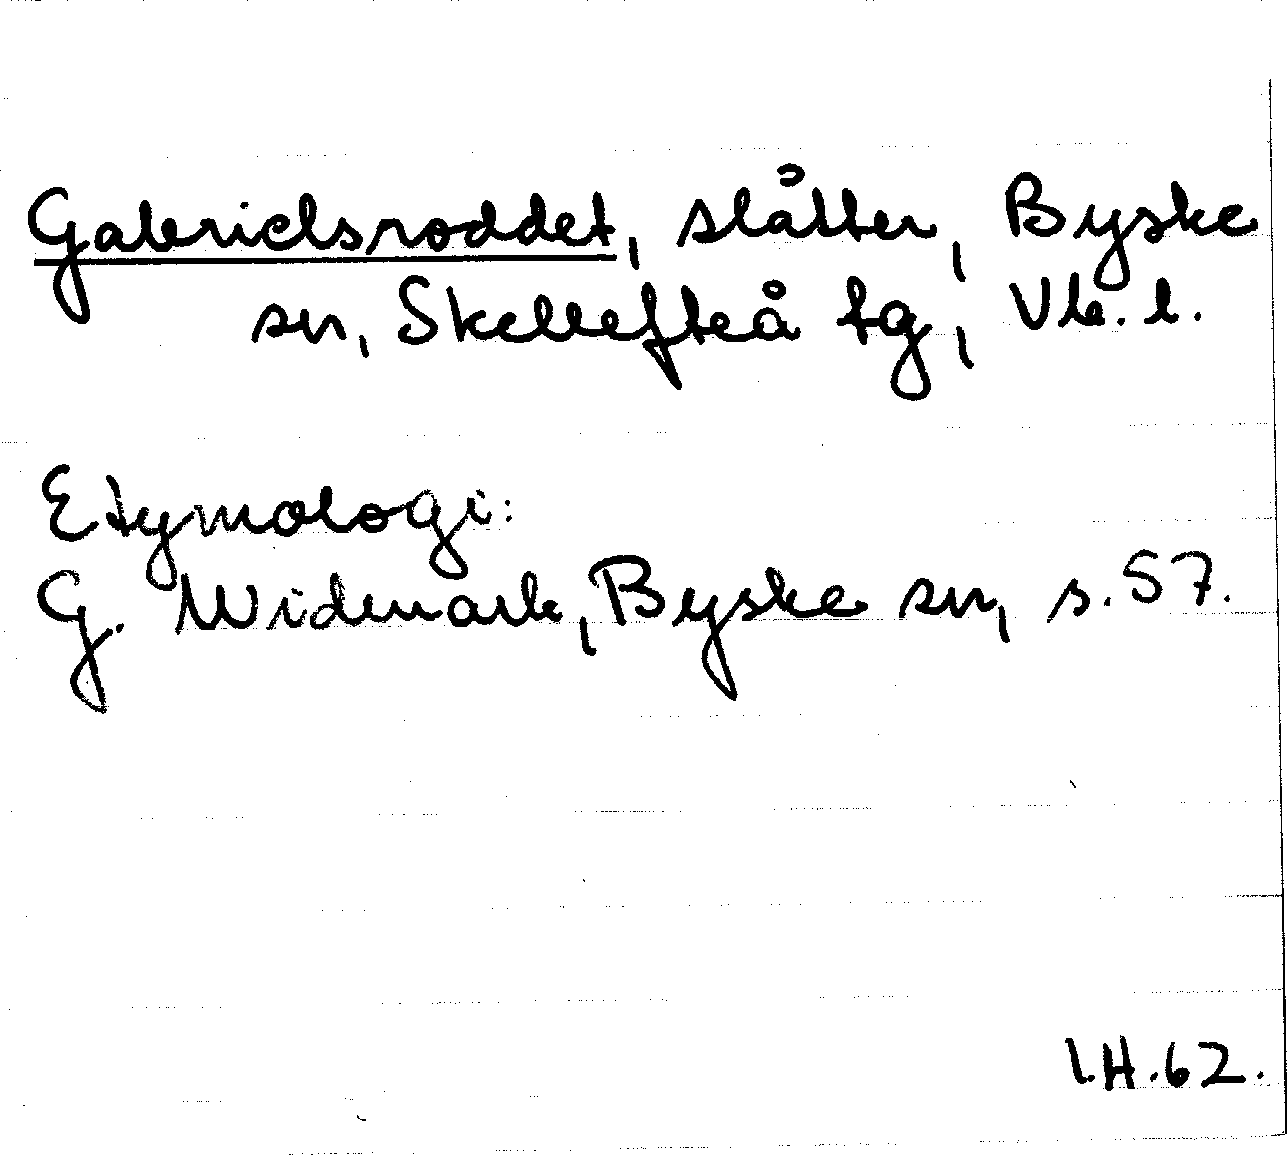 Gabrielsroddet, slåtter, Byske
sn, Skellefteå tg, Vb. l.
Etymologi:
G. Widmark, Byske sn, s. 57.
I.H.62.